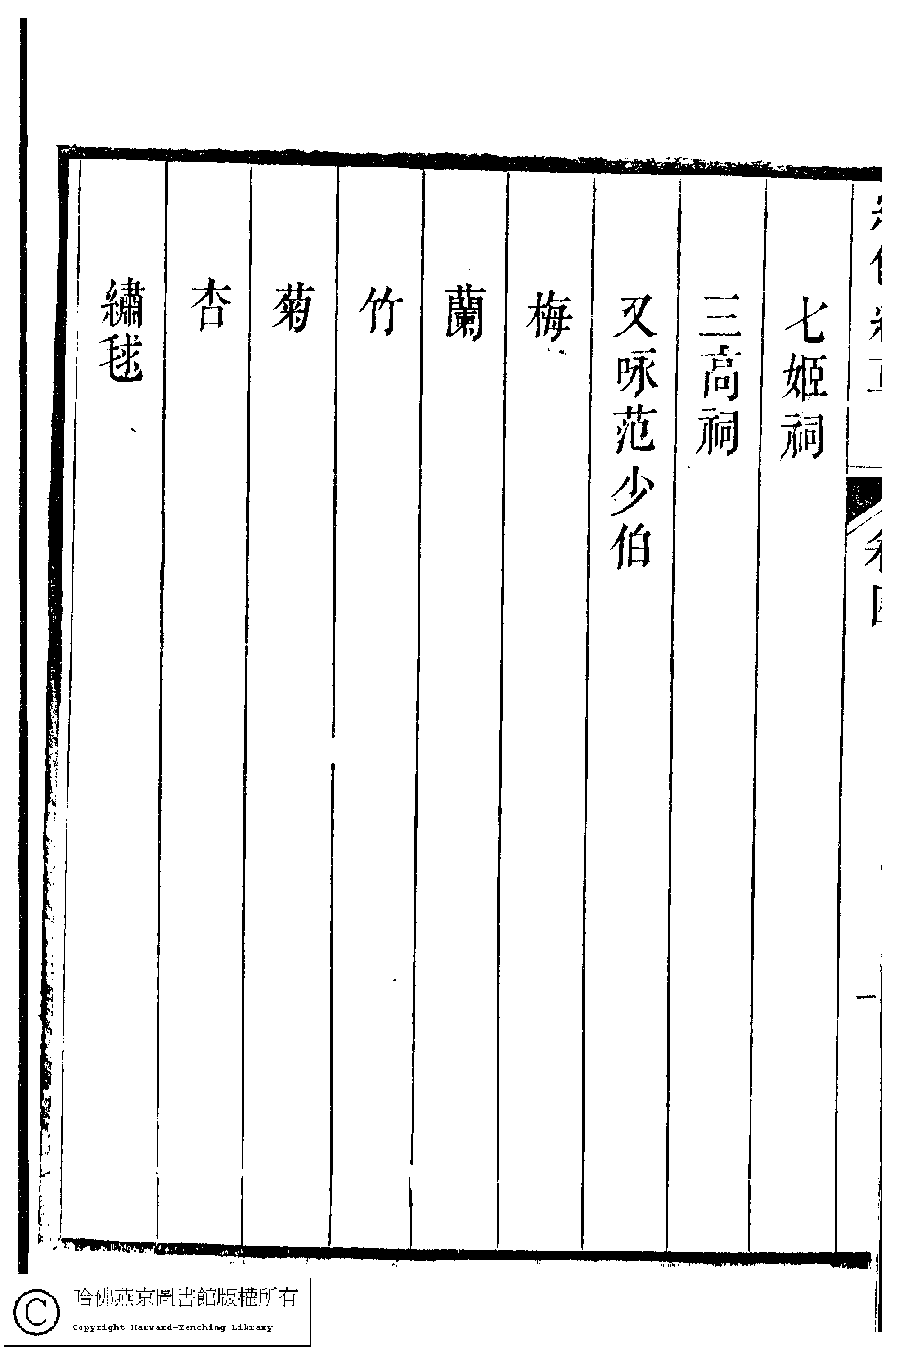 七姬祠
三高祠
又咏范少伯
梅
蘭
竹
菊
杏
繡毬
一
哈佛燕京圖書館版權所有
Copyright Harvard-Yenching Library